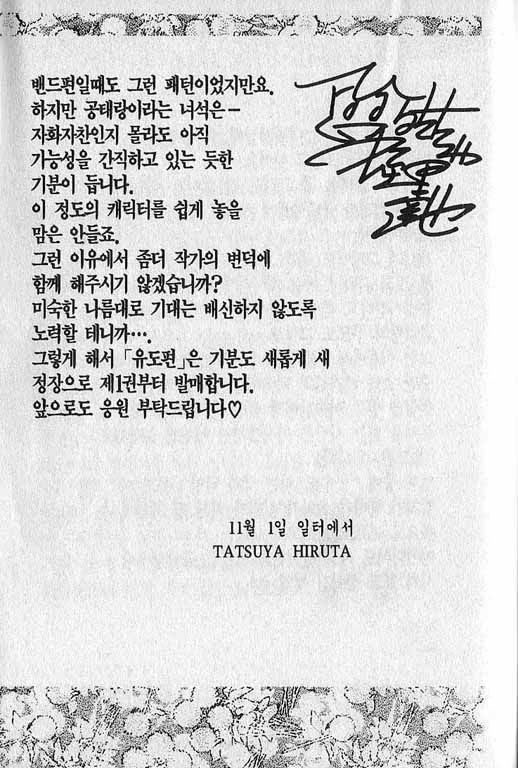 밴드편일때도 그런 패턴이었지만요.
하지만 공태랑이라는 녀석은-
자화자찬인지 몰라도 아직
가능성을 간직하고 있는 듯한
기분이 듭니다.
이 정도의 캐릭터를 쉽게 놓을
맘은 안들죠.
그런 이유에서 좀더 작가의 변덕에
함께 해주시기 않겠습니까?
미숙한 나름대로 기대는 배신하지 않도록
노력할 테니까….
그렇게 해서 「유도편」은 기분도 새롭게 새
정장으로 제1권부터 발매합니다.
앞으로도 응원 부탁드립니다♡
11월 1일 일터에서
TATSUYA HIRUTA